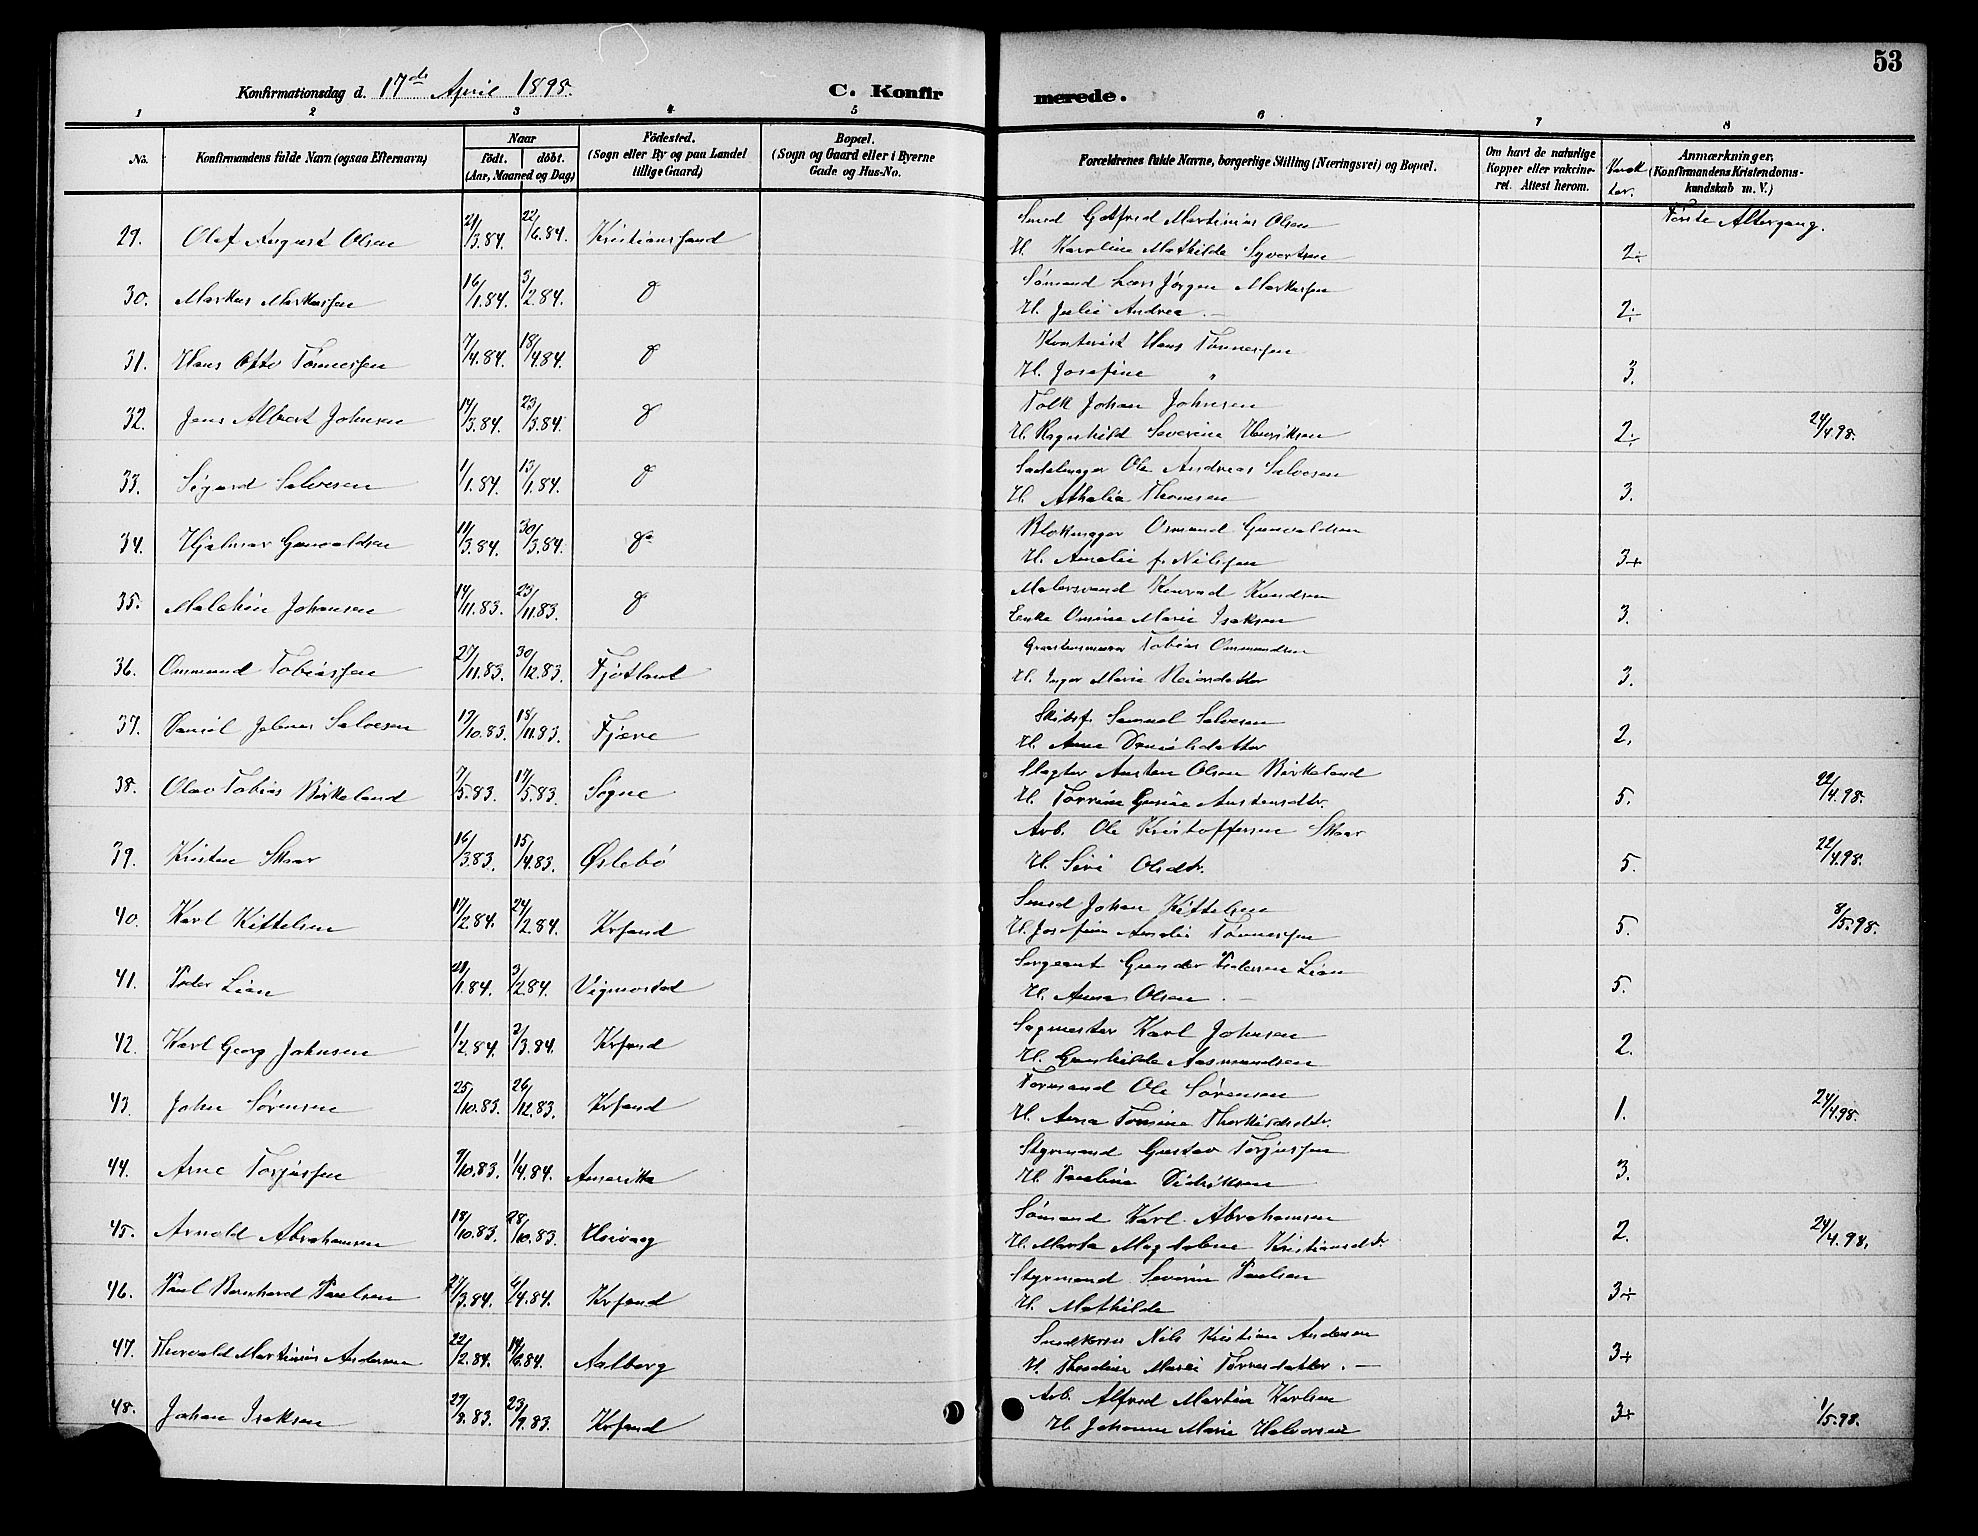 53
Konfirmationsdag d. 17de April 1898. C. Konfirmerede.
1 2 3 4 5 6 7 8
No.
Konfirmandens fulde Navn (ogsaa Efternavn)
Naar
Födt. döbt.
(Aar, Maaned og Dag)
Födested.
(Sogn eller By og paa Landet
tillige Gaard)
Bopæl.
(Sogn og Gaard eller i Byerne
Gade og Hus-No.
Forældrenes fulde Navne, borgerlige Stilling (Næringsvei) og Bopæl.
Om havt de naturlige
Kopper eller vakcine-
ret. Attest herom.
Karak
ter.
Anmærkninger,
(Konfirmandens Kristendoms-
kundskab m. V.)
Første Altergang.
29. Olaf August Olsen 21/3.84. 22/6.84. Kristianssand
Smed Gotfred Martinius Olsen
H. Karoline Mathilde Syvertsen 2÷
30. Markus Markussen 16/1.84. 3/2.84. do
Sømand Lars Jørgen Markussen
H. Julie Andrea — 2÷
31. Hans Otto Tønnessen 7/4.84. 18/4.84. do
Kontorist Hans Tønnessen
H. Josefine " 3.
32. Jens Albert Johnsen 14/3.84. 23/3.84. do
Tolk Johan Johnsen
H. Ragnhild Severine Henriksen 2÷ 24/4.98.
33. Sigurd Salvesen 1/1.84. 13/1.84. do
Sadelmager Ole Andreas Salvesen
H. Athalia Thomsen 3.
34. Hjalmar Gunvaldsen 14/3.84. 30/3.84. do
Blokmager Osmund Gunvaldsen
H. Amalie f. Nilssen 3+
35. Malchin Johansen 14/11.83. 23/11.83. do
Malersvend Konrad Knudsen
Enke Omine Marie Isaksen 3.
36. Ommund Tobiassen 27/11.83. 30/12.83. Fjotland
Tobias Ommundsen
H. Inger Marie Reiersdatter 3.
37. Daniel Salvesen 19/10.83. 18/11.83. Fjære
Skibsf. Samuel Salvesen
H. Anne Danielsdatter 2.
38. Olav Tobias Birkeland 7/5.83. 17/5.83. Søgne
Slagter Austen Olsen Birkeland
H. Torrine Gusine Austensdtr. 5. 22/4.98.
39. Kristen Skaar 16/3.83. 15/4.83. Øslebö
Arb. Ole Kristoffersen Skaar
H. Siri Olsdtr. 5. 22/4.98.
40. Karl Kittelsen 17/2.84. 24/2.84. Krsand
Smed Johan Kittelsen
H. Josefine Amalie Tønnessen 5. 8/5.98.
41. Peder Lian 21/1.84. 3/2.84. Vigmostad
Sergeant Gunder Pedersen Lian
H. Anna Olsen — 5.
42. Karl Georg Johnsen 1/2.84. 2/3.84. Krsand
Sagmester Karl Johnsen
H. Gunhilde Aasmundsen 2.
43. John Sørensen 25/10.83. 26/12.83. Krsand
Formand Ole Sørensen
H. Anna Tomine Therkildsdtr. 1. 24/4.98.
44. Arne Torjussen 9/10.83. 1/4.84. Amerika
Styrmand Gustav Torjussen
H. Pauline Didriksen 3.
45. Arnold Abrahamsen 18/10.83. 28/10.83. Høivaag
Sømand Karl Abrahamsen
H. Marta Magdalene Kristiansdtr. 2. 24/4.98.
46. Paul Bernhard Paulsen 21/3.84. 6/4.84. Krsand
Styrmand Severin Paulsen
H. Mathilde 3+
47. Thorvald Martinius Andersen 22/2.84. 14/6.84. Aalborg
Nils Kristian Andersen
H. Theodine Marie Torresdatter. — 3+
48. Johan Isaksen 27/8.83. 23/9.83. Krsand
Arb. Alfred Martin Karlsen
H. Johanne Marie Halvorsen 3+ 1/5.98.